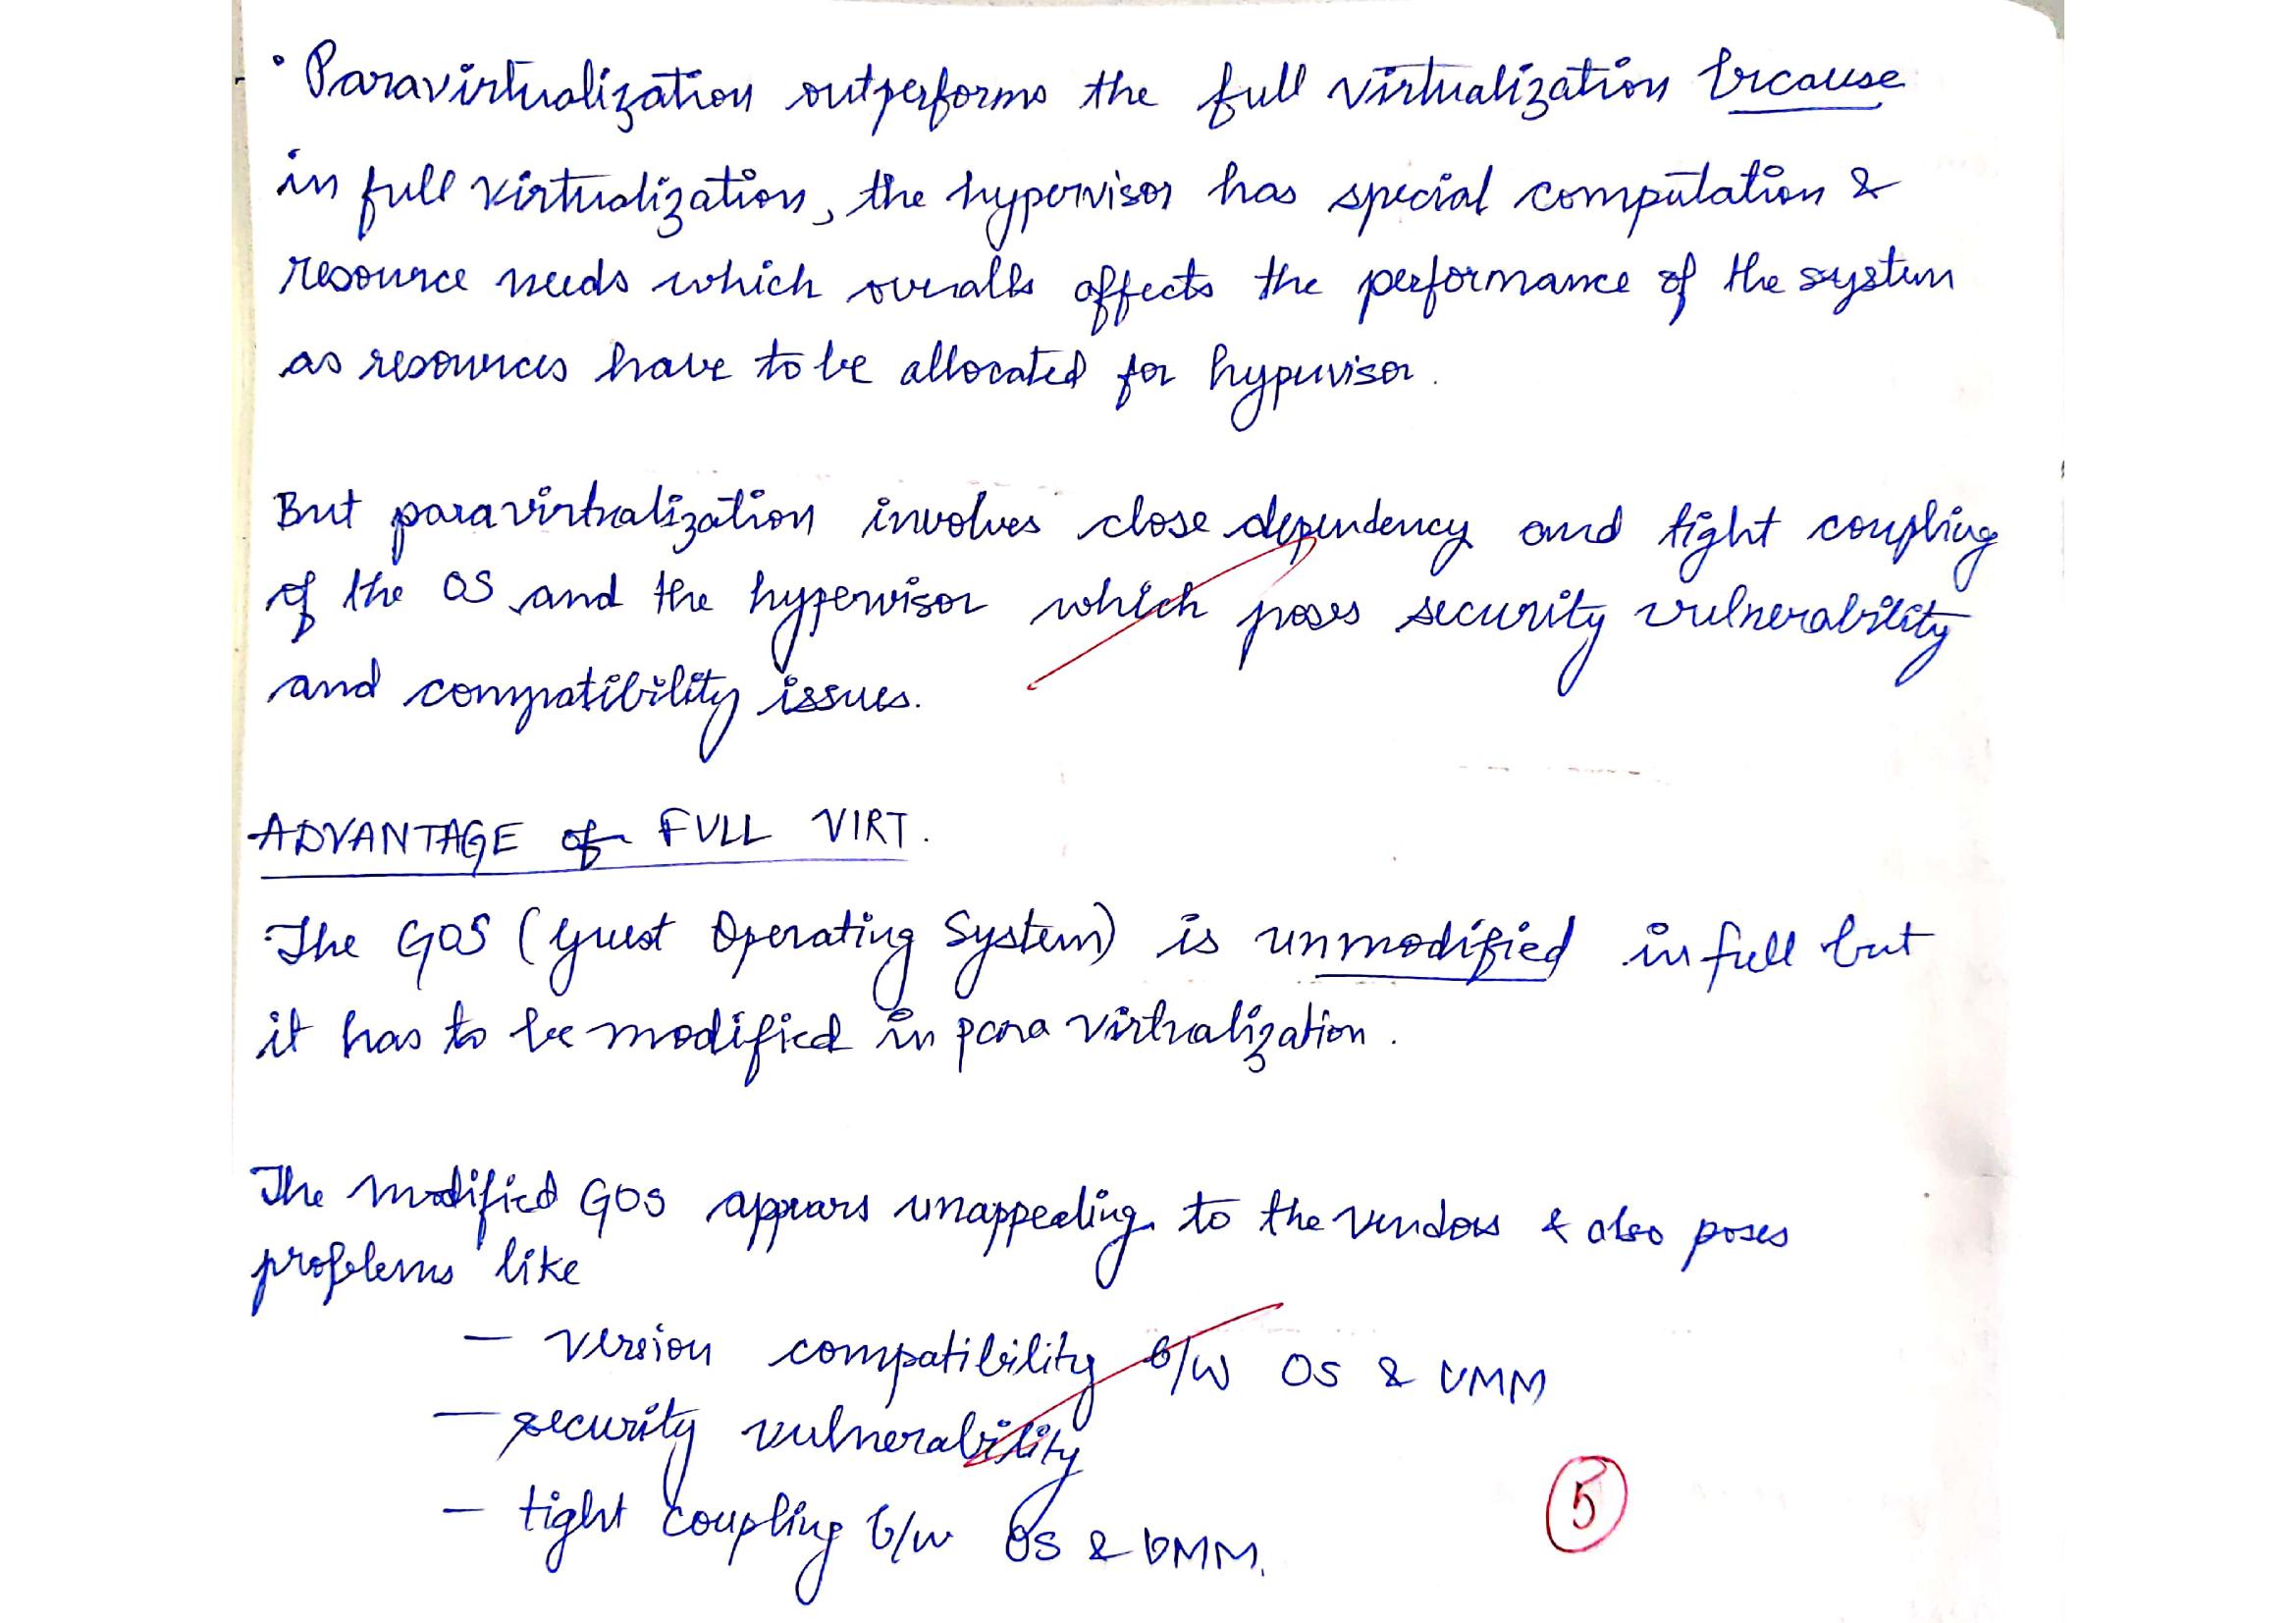 • Paravirtualization outperforms the full virtualization because
in full virtualization, the hypervisor has special computation &
resource needs which overalls affects the performance of the system
as resources have to be allocated for hypervisor.
But paravirtualization involves close dependency and tight coupling
of the OS and the hypervisor which poses security vulnerability
and compatibility issues.
ADVANTAGE of FULL VIRT.
The GOS (Guest Operating System) is unmodified in full but
it has to be modified in para virtualization.
The modified GOS appears unappealing to the vendors & also poses
problems like
— version compatibility b/w OS & VMM
— security vulnerability
— tight coupling b/w OS & VMM.
5